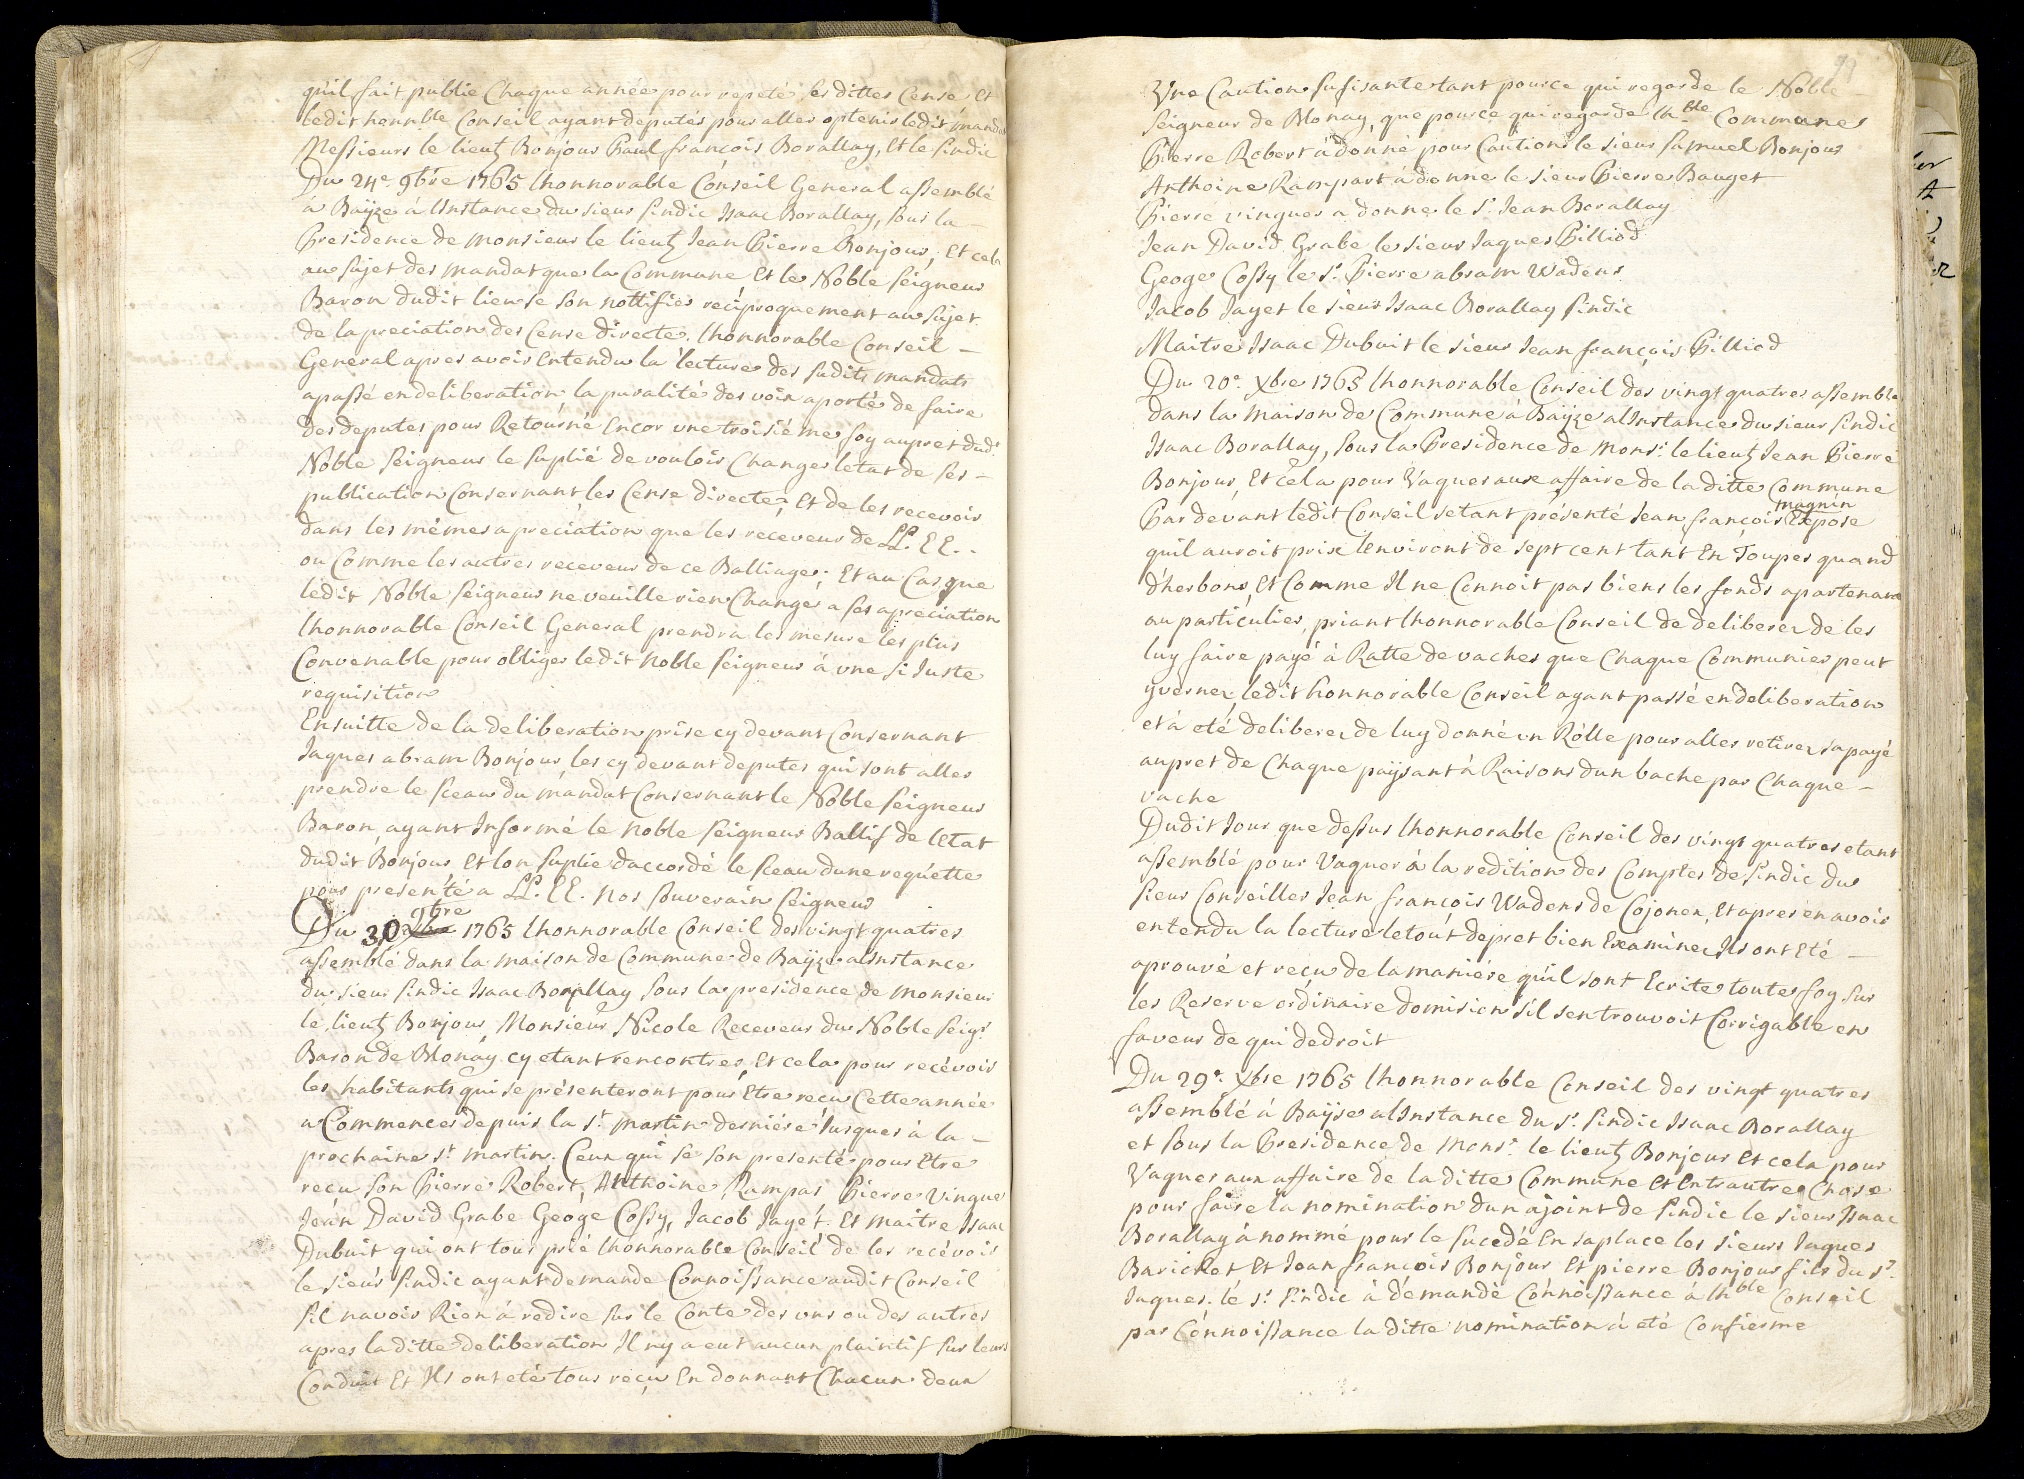 qu'il fait publie Chaque année pour repeté les dittes Cense Et
ledit honnble Conseil ayant deputés pour aller optenir ledit mandat
Messieurs le lieut Bonjour Paul françois Borallay, Et le sindic
Du 24e. 9bre 1765 lhonnorable Conseil General assemblé
à Baÿze à lInstance du sieur sindic Isaac Borallay, sous la –
Presidence de Monsieur le lieut Jean Pierre Bonjour, Et cela
au sujet des mandat que la Commune Et le Noble seigneur
Baron dudit lieu se son nottifiés reciproquement au sujet
de lapreciation des Cense directe. lhonnorable Conseil –
General apres avoir Entendu la lecture des sudits mandats
apassé en deliberation la puralité des voix aporté de faire
des deputés pour Retourné Encor une troisiéme foy aupret dudt
Noble seigneur le suplié de vouloir Changer letat de ses –
publication Consernant les Cense directe; Et de les recevoir
dans les mêmes apreciation que les receveur de LL. EE. -
ou Comme les autres receveur de ce Balliage; Et au Cas que
ledit Noble seigneur ne veuille rien Changé a ses apreciation
lhonnorable Conseil General prendra les mesure les plus
Convenable pour obliger ledit Noble seigneur à une si Juste
requisition
Ensuitte de la deliberation prise cy devant Consernant
Jaques abram Bonjour, les cy devant deputés qui sont aller
prendre le sceau du mandat Consernant le Noble seigneur
Baron, ayant Informé le noble seigneur Ballif de lEtat
dudit Bonjour Et lon suplie daccordé le sceau dune requétte
pour presenté a LL. EE. nos souverain seigneur
9bre
Du 30 Xbre 1765 lhonnorable Conseil des vingt quatres
assemblé dans la maison de Commune de Baÿze alInstance
du sieur sindic Isaac Borallay sous la presidence de Monsieur
le lieut Bonjour, Monsieur Nicole Receveur du Noble seigr
Baron de Blonay cy etant rencontres, Et cela pour recévoir
les habitants qui se présenteront pour Etre recu Cette année
a Commencer depuis la st. martin derniére Jusques à la –
prochaine st. martin. Ceux qui se son presenté pour Etre
recu son Pierre Robert, Anthoine Rampar Pierre Vingue
Jean David Grabe Geoge Cossy, Jacob Jayet. Et maitre Isaac
Dubuit qui ont tous prié lhonnorable Conseil de les recévoir
le sieur sindic ayant demande Connoissance audit Conseil
sil navoir Rien à redire sur le Conte des uns ou des autres
apres la ditte deliberation Il ny a eut aucun plaintif sur leurs
Conduit Et Ils ont eté tous reçu En donnant Chacun deux
Une Caution sufisante tant pource qui regarde le Noble
seigneur de Blonay, que pource qui regarde lhble Commune
Pierre Robert à donné pour Caution le sieur samuel Bonjour
Anthoine Rampart à donne le sieur Pierre Bauget
Pierre vingues a donne le sr. Jean Borallay
Jean David Grabe le sieur Jaques Pilliod
Geoge Cossy le sr. Pierre abram Wadens
Jacob Jayet le sieur Isaac Borallay sindic
Maitre Isaac Dubuit le sieur Jean françois Pilliod
Du 20e. Xbre 1765 lhonnorable Conseil des vingt quatres assemblé
dans la maison de Commune à Baÿze alInstance du sieur sindic
Isaac Borallay, sous la Presidence de Monsr. le lieut Jean Pierre
Bonjour, Et cela pour Vaquer aux affaire de la ditte Commune
magnin
Par devant ledit Conseil setant présenté Jean françois Expose
quil auroit prix lenviront de sept cent tant En Toupes quand
d'herbons, Et Comme Il ne Connoit pas biens les fonds apartenant
au particulier, priant lhonnorable Conseil de deliberer de les
luy faire payé à Ratte de vaches que Chaque Communier peut
yverner, ledit honnorable Conseil ayant passé en deliberation
et à eté deliberer de luy donné un Rôlle pour aller retirer sa payé
aupret de Chaque païsant à Raisons dun bache par Chaque –
vache
Dudit Jour que dessus lhonnorable Conseil des vingt quatres etant
assemblé pour Vaquer à la redition des Comptes de sindic du
sieur Conseiller Jean françois Wadens de Cojonex, Et apres en avoir
entendu la lecture letout depret bien Examiner, Ils ont Eté –
aprouvé et reçu de la maniére qu'il sont Ecrite toute foy sur
les Reserve ordinaire domision s'il s'entrouvoit Corrigable en
faveur de qui dedroit
Du 29e. Xbre 1765 lhonnorable Conseil des vingt quatres
assemblé à Baÿse alInstance du sr. sindic Isaac Borallay
et sous la Presidence de Monsr. le lieut Bonjour Et cela pour
Vaquer aux affaire de la ditte Commune Et Entrautre Chose
pour faire la nomination dun ajoint de sindic le sieur Isaac
Borallay à nommé pour le sucedé En saplace les sieurs Jaques
Barichet Et Jean françois Bonjour Et pierre Bonjour fils du sr.
Jaques. le sr. sindic à démandé Connoissance à lhble Conseil
par Connoissance la ditte nomination à eté Confierme